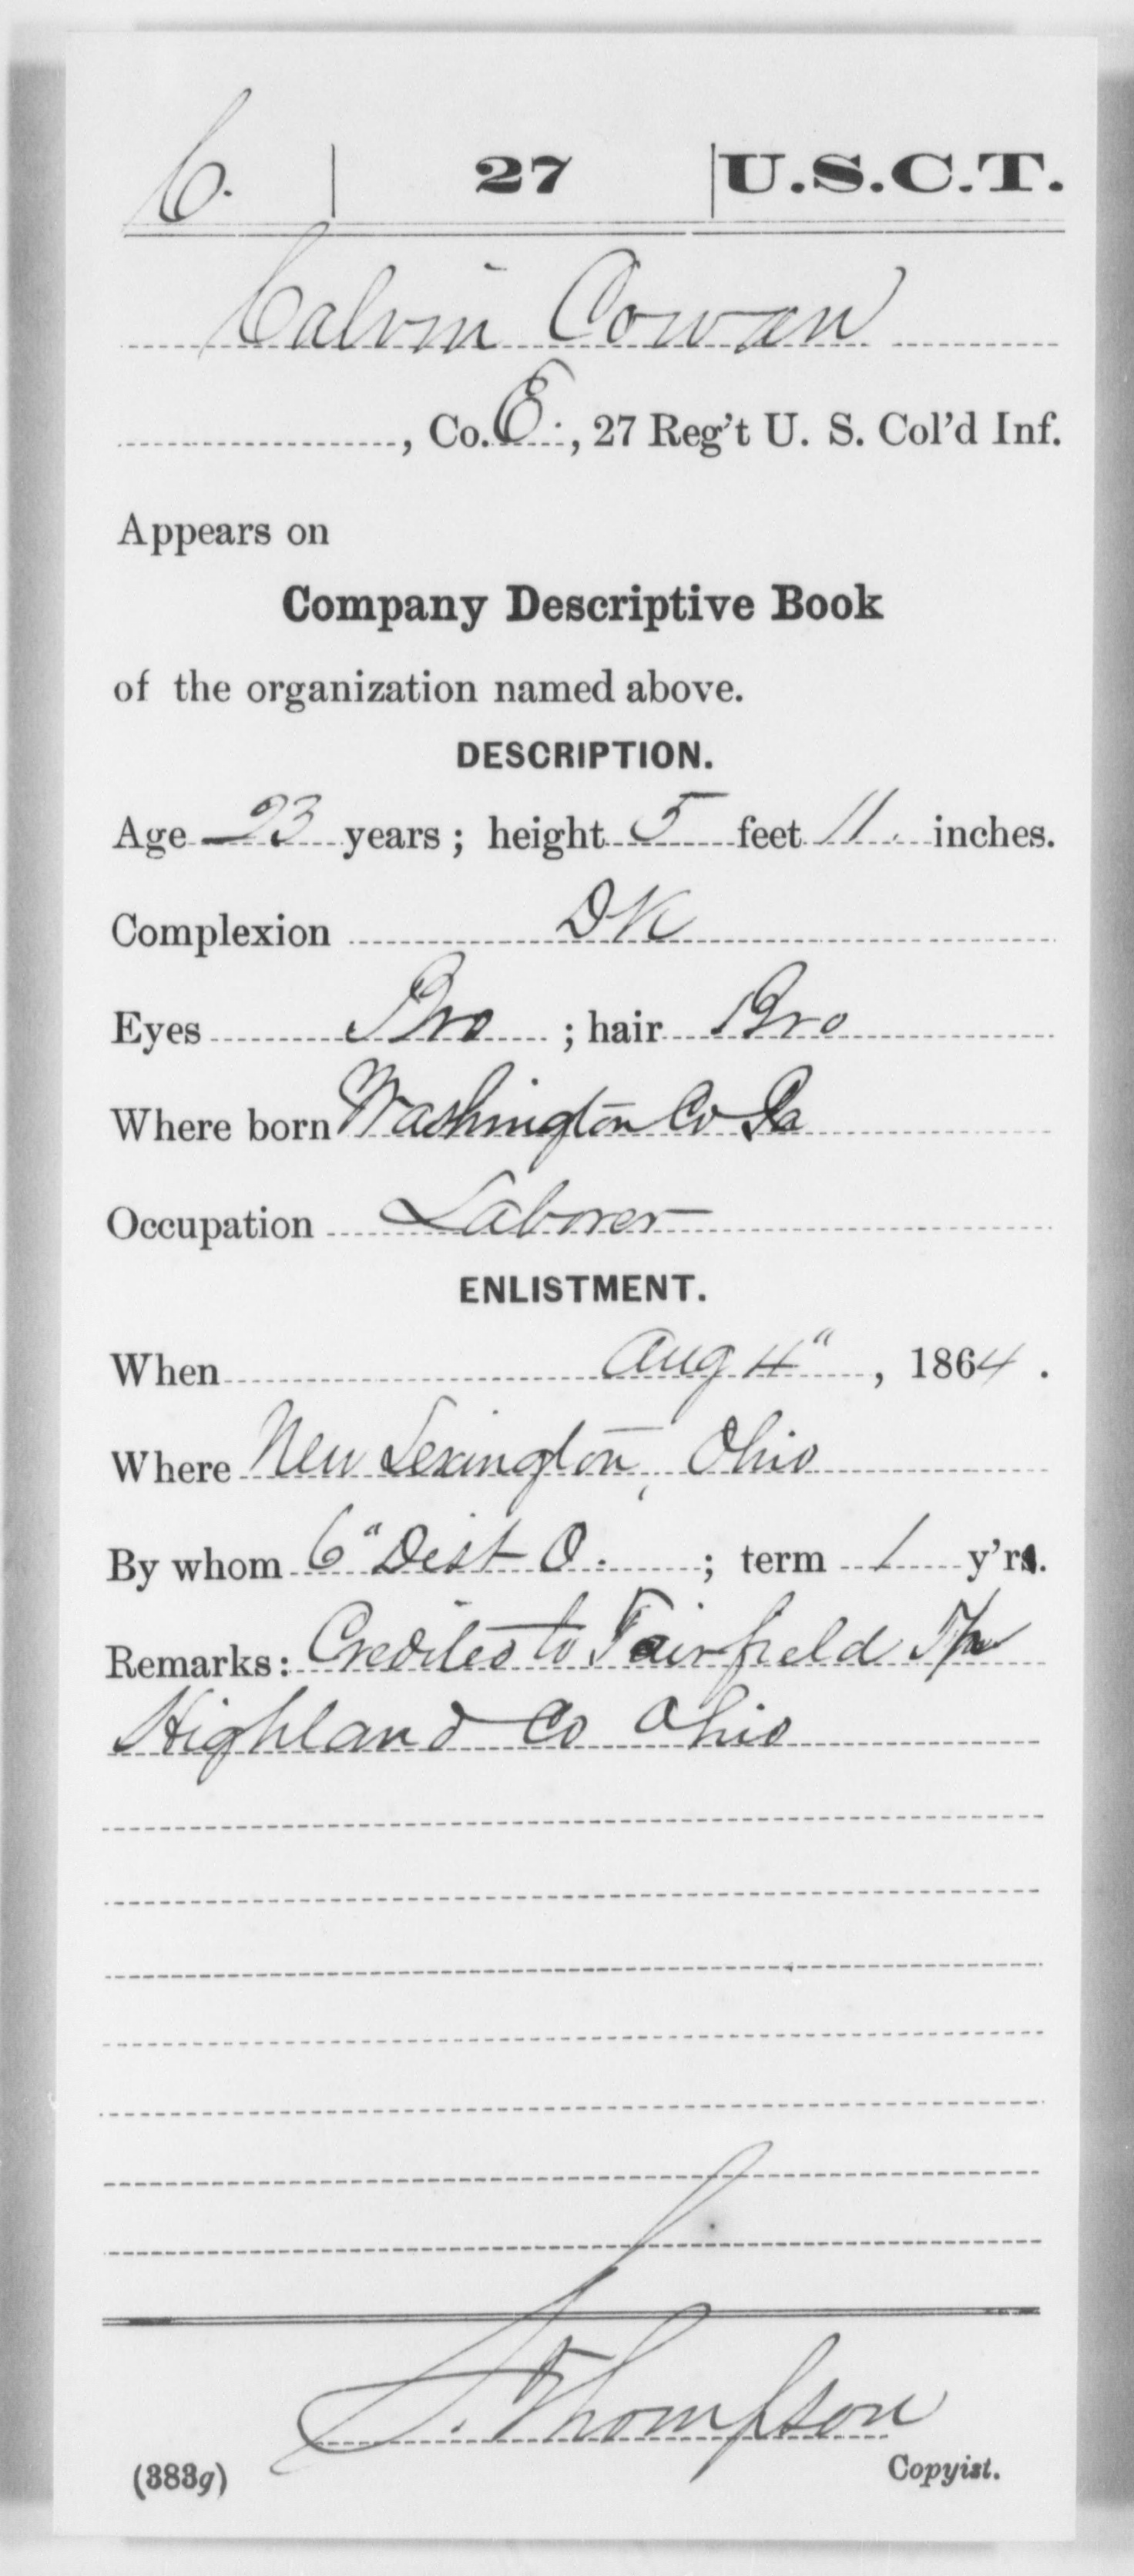 C. 27 U.S.C.T.
Calvin Cowan
, Co. E., 27 Reg't U. S. Col'd Inf.
Appears on
Company Descriptive Book
of the organization named above.
DESCRIPTION.
Age 23 years; height 5 feet 11. inches.
Complexion DK
Eyes Bro; hair Bro
Where born Washington Co Pa
Occupation Laborer
ENLISTMENT.
When Aug 4", 1864.
Where New Lexington, Ohio
By whom 6" Dist O.; term 1 y'rs.
Remarks: Credited to Fairfield Tp
Highland Co Ohio
Thompson
(383g) Copyist.